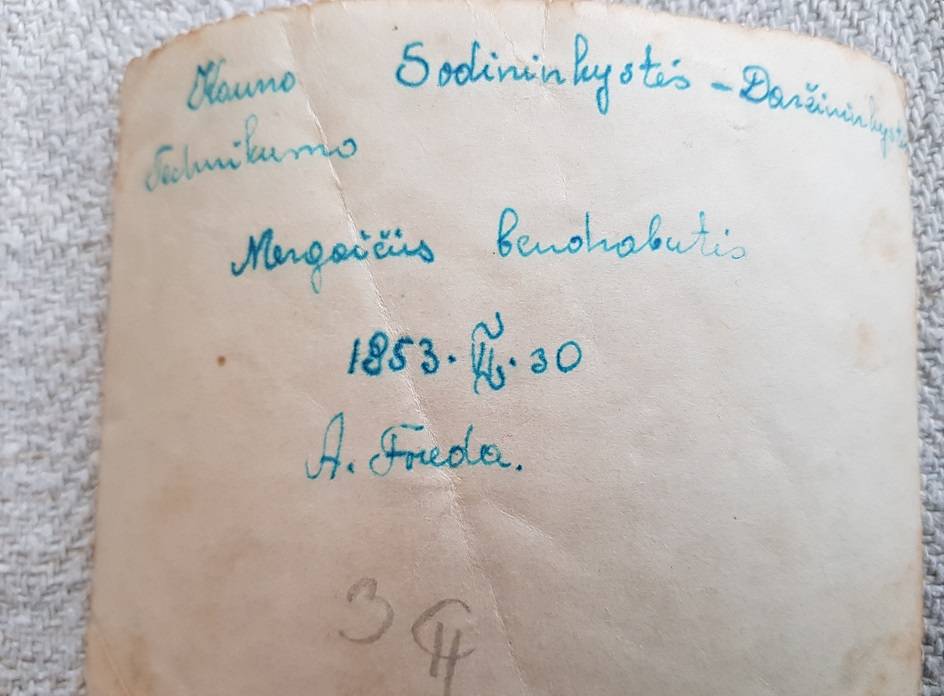 Kauno Sodininkystės - Daržininkystės
Technikumo
Mergaičiū bendrabutis
1953. 30
A. Freda.
3